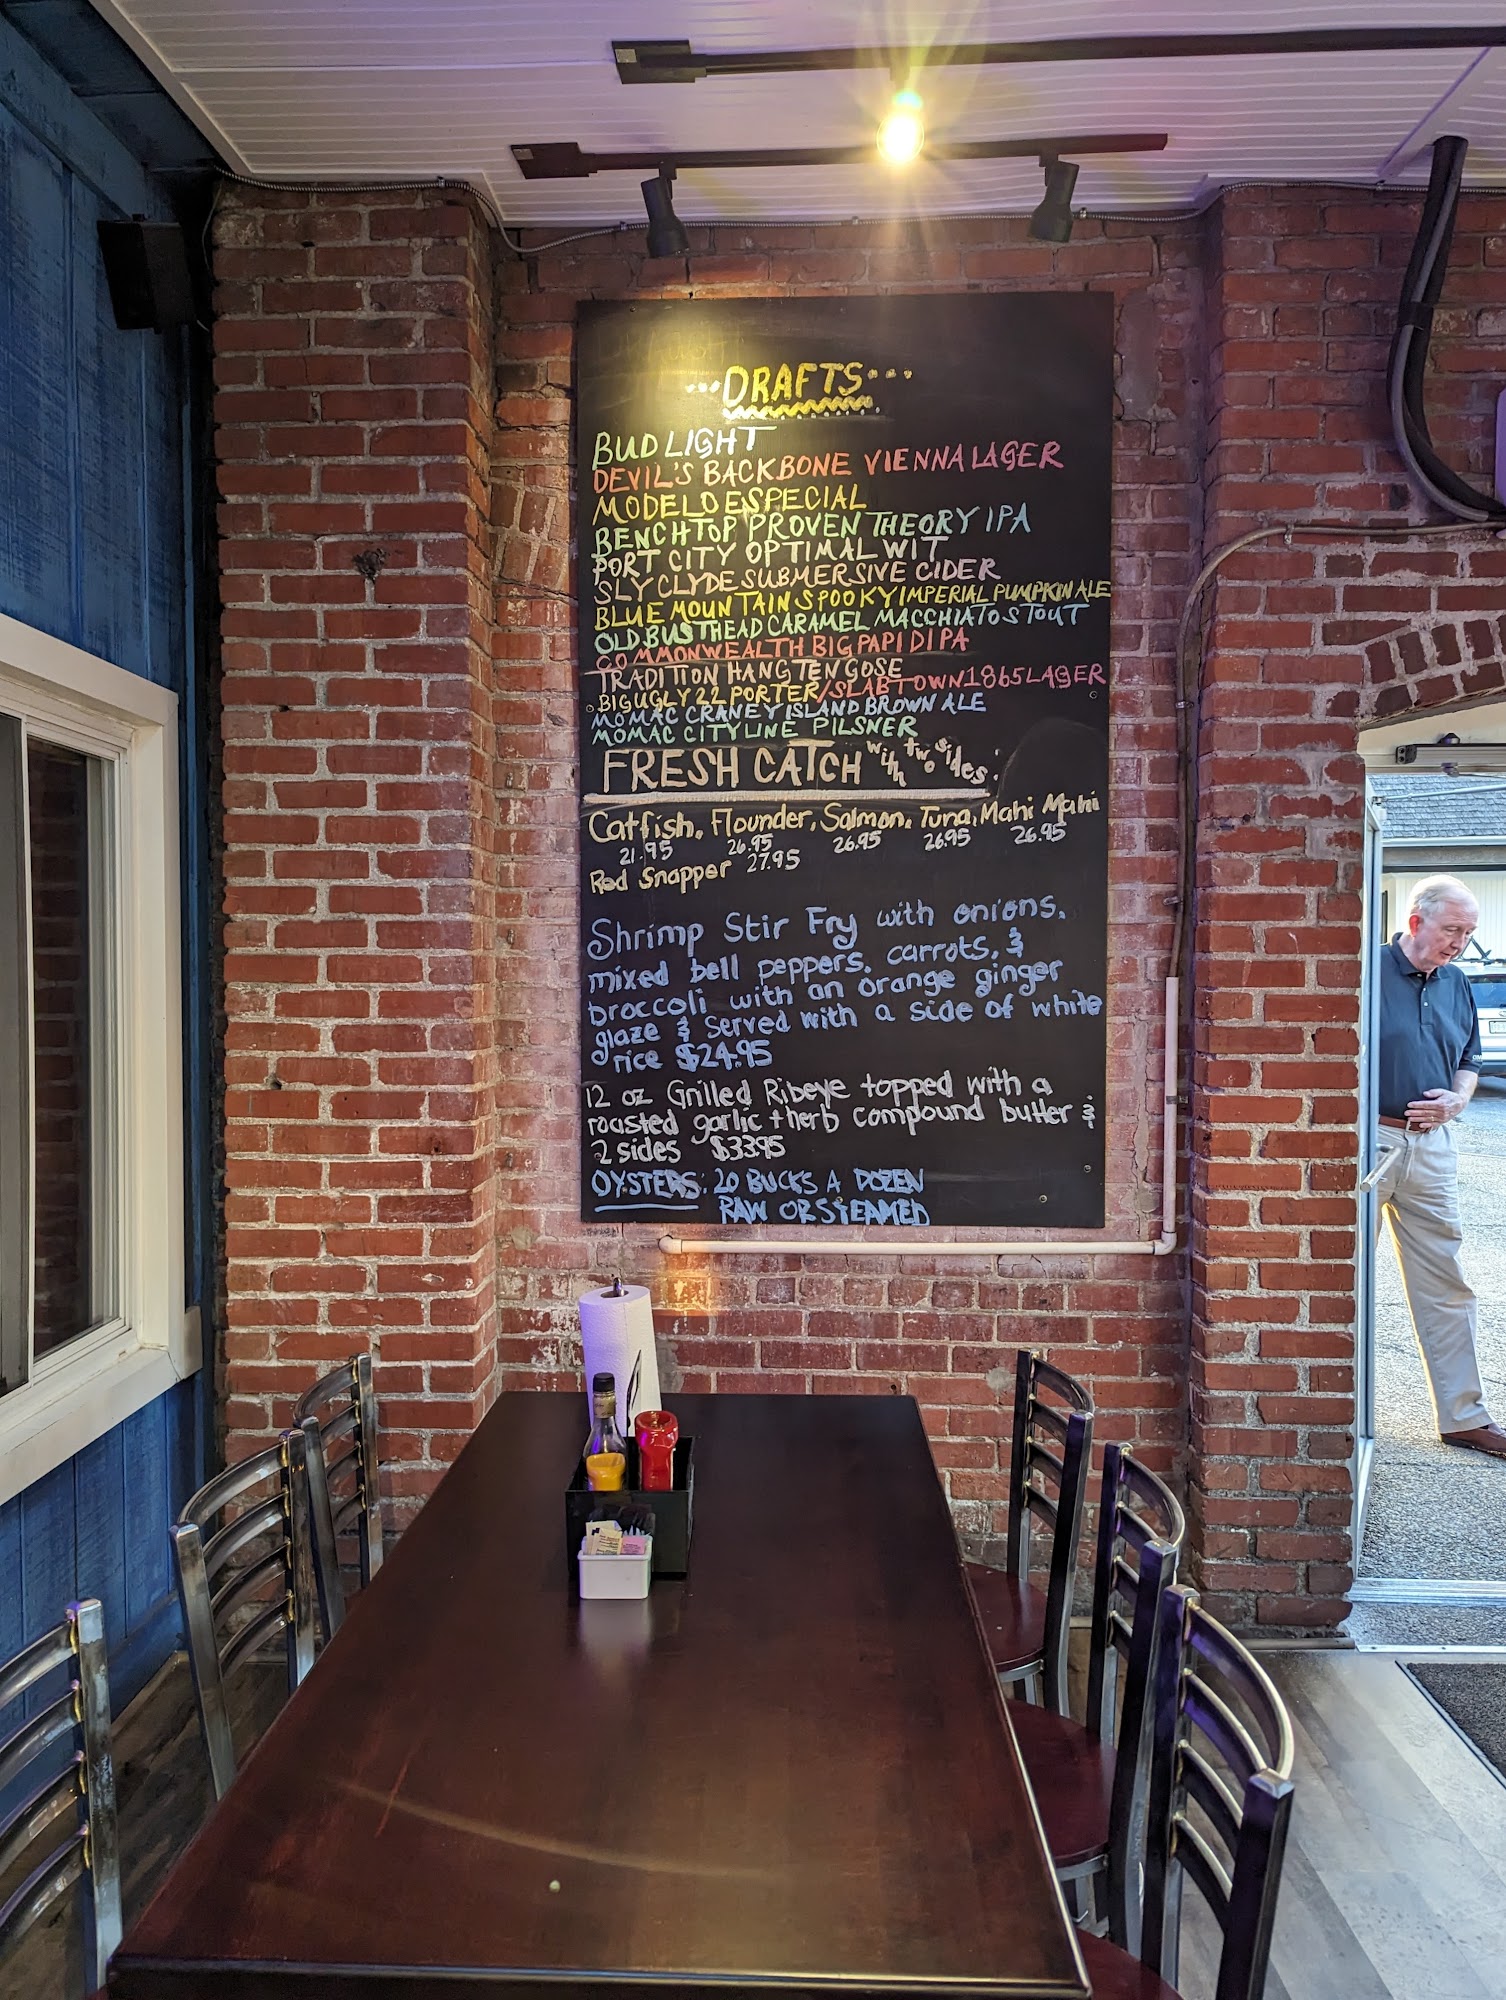 ...DRAFTS...
BUD LIGHT
DEVIL'S BACKBONE VIENNA LAGER
MODELO ESPECIAL
BENCHTOP PROVEN THEORY IPA
PORT CITY OPTIMAL WIT
SLY CLYDE SUBMERSIVE CIDER
BLUE MOUNTAIN SPOOKY IMPERIAL PUMPKIN ALE
OLD BUSTHEAD CARAMEL MACCHIATO STOUT
COMMONWEALTH BIG PAPI DIPA
TRADITION HANG TEN GOSE
BIG UGLY 22 PORTER/SLABTOWN 1865 LAGER
MOMAC CRANEY ISLAND BROWN ALE
MOMAC CITYLINE PILSNER
FRESH CATCH with two sides:
Catfish, Flounder, Salmon, Tuna, Mahi Mahi
21.95 26.95 26.95 26.95 26.95
Red Snapper 27.95
Shrimp Stir Fry with onions,
mixed bell peppers, carrots, &
broccoli with an orange ginger
glaze & served with a side of white
rice $24.95
12 oz Grilled Ribeye topped with a
roasted garlic + herb compound butter &
2 sides $33.95
OYSTERS: 20 BUCKS A DOZEN
RAW OR STEAMED